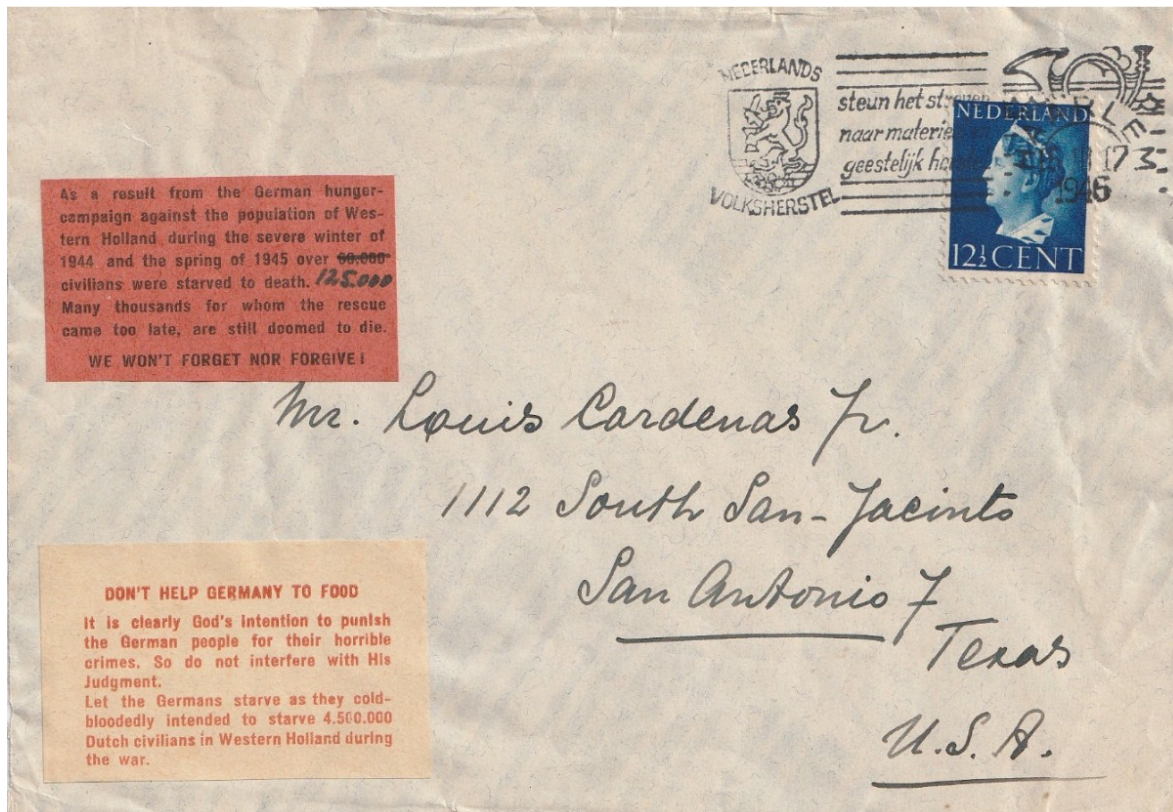 NEDERLANDS
VOLKSHERSTEL
steun het
naar
geestelijk
NEDERLAND
1946
12½ CENT
As a result from the German hunger-
campaign against the population of Wes-
tern Holland during the severe winter of
1944 and the spring of 1945 over 60.000
civilians were starved to death. 125.000
Many thousands for whom the rescue
came too late, are still doomed to die.
WE WON'T FORGET NOR FORGIVE!
Mr. Louis Cardenas Jr.
1112 South San-Jacinto
San Antonio 7
Texas
U.S.A.
DON'T HELP GERMANY TO FOOD
It is clearly God's intention to punish
the German people for their horrible
crimes. So do not interfere with His
Judgment.
Let the Germans starve as they cold-
bloodedly intended to starve 4.500.000
Dutch civilians in Western Holland during
the war.